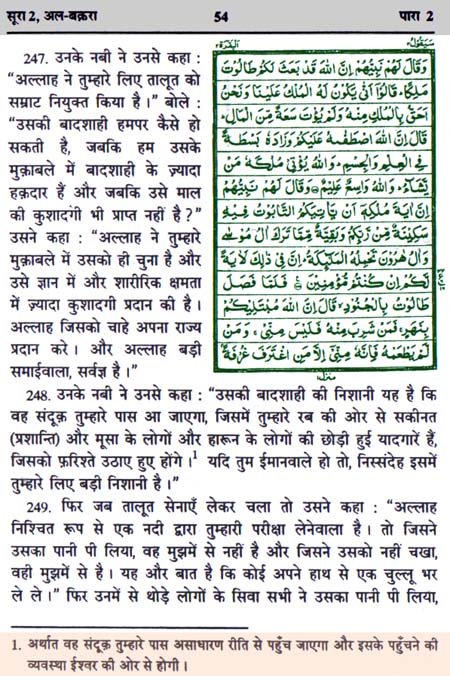 सूरा 2, अल-बक़रा 54 पारा 2
247. उनके नबी ने उनसे कहा :
“अल्लाह ने तुम्हारे लिए तालूत को
सम्राट नियुक्त किया है।” बोले :
“उसकी बादशाही हमपर कैसे हो
सकती है, जबकि हम उसके
मुक़ाबले में बादशाही के ज़्यादा
हक़दार हैं और जबकि उसे माल
की कुशादगी भी प्राप्त नहीं है?”
उसने कहा : “अल्लाह ने तुम्हारे
मुक़ाबले में उसको ही चुना है और
उसे ज्ञान में और शारीरिक क्षमता
में ज़्यादा कुशादगी प्रदान की है।
अल्लाह जिसको चाहे अपना राज्य
प्रदान करे। और अल्लाह बड़ी
समाईवाला, सर्वज्ञ है।”
سَيَقُولُ ٢ الْبَقَرَة ٢
وَقَالَ لَهُمْ نَبِيُّهُمْ إِنَّ اللهَ قَدْ بَعَثَ لَكُمْ طَالُوتَ
مَلِكًا، قَالُوٓا أَنَّىٰ يَكُونُ لَهُ الْمُلْكُ عَلَيْنَا وَنَحْنُ
أَحَقُّ بِالْمُلْكِ مِنْهُ وَلَمْ يُؤْتَ سَعَةً مِّنَ الْمَالِ،
قَالَ إِنَّ اللهَ اصْطَفٰىهُ عَلَيْكُمْ وَزَادَهُ بَسْطَةً
فِي الْعِلْمِ وَالْجِسْمِ، وَاللهُ يُؤْتِي مُلْكَهُ مَنْ
يَّشَآءُ، وَاللهُ وَاسِعٌ عَلِيمٌ۝ وَقَالَ لَهُمْ نَبِيُّهُمْ
إِنَّ اٰيَةَ مُلْكِهٖٓ أَنْ يَّأْتِيَكُمُ التَّابُوتُ فِيهِ
سَكِينَةٌ مِّنْ رَّبِّكُمْ وَبَقِيَّةٌ مِّمَّا تَرَكَ اٰلُ مُوسٰى
وَاٰلُ هٰرُونَ تَحْمِلُهُ الْمَلٰٓئِكَةُ، إِنَّ فِي ذٰلِكَ لَاٰيَةً
لَّكُمْ إِنْ كُنْتُمْ مُّؤْمِنِينَ۝ فَلَمَّا فَصَلَ
طَالُوتُ بِالْجُنُودِ، قَالَ إِنَّ اللهَ مُبْتَلِيكُمْ
بِنَهَرٍ، فَمَنْ شَرِبَ مِنْهُ فَلَيْسَ مِنِّي، وَمَنْ
لَّمْ يَطْعَمْهُ فَإِنَّهُ مِنِّيٓ إِلَّا مَنِ اغْتَرَفَ غُرْفَةً
248. उनके नबी ने उनसे कहा : “उसकी बादशाही की निशानी यह है कि
वह संदूक़ तुम्हारे पास आ जाएगा, जिसमें तुम्हारे रब की ओर से सकीनत
(प्रशान्ति) और मूसा के लोगों और हारून के लोगों की छोड़ी हुई यादगारें हैं,
जिसको फ़रिश्ते उठाए हुए होंगे।1 यदि तुम ईमानवाले हो तो, निस्संदेह इसमें
तुम्हारे लिए बड़ी निशानी है।”
249. फिर जब तालूत सेनाएँ लेकर चला तो उसने कहा : “अल्लाह
निश्चित रूप से एक नदी द्वारा तुम्हारी परीक्षा लेनेवाला है। तो जिसने
उसका पानी पी लिया, वह मुझमें से नहीं है और जिसने उसको नहीं चखा,
वही मुझमें से है। यह और बात है कि कोई अपने हाथ से एक चुल्लू भर
ले ले।” फिर उनमें से थोड़े लोगों के सिवा सभी ने उसका पानी पी लिया,
1. अर्थात वह संदूक़ तुम्हारे पास असाधारण रीति से पहुँच जाएगा और इसके पहुँचने की
व्यवस्था ईश्वर की ओर से होगी।